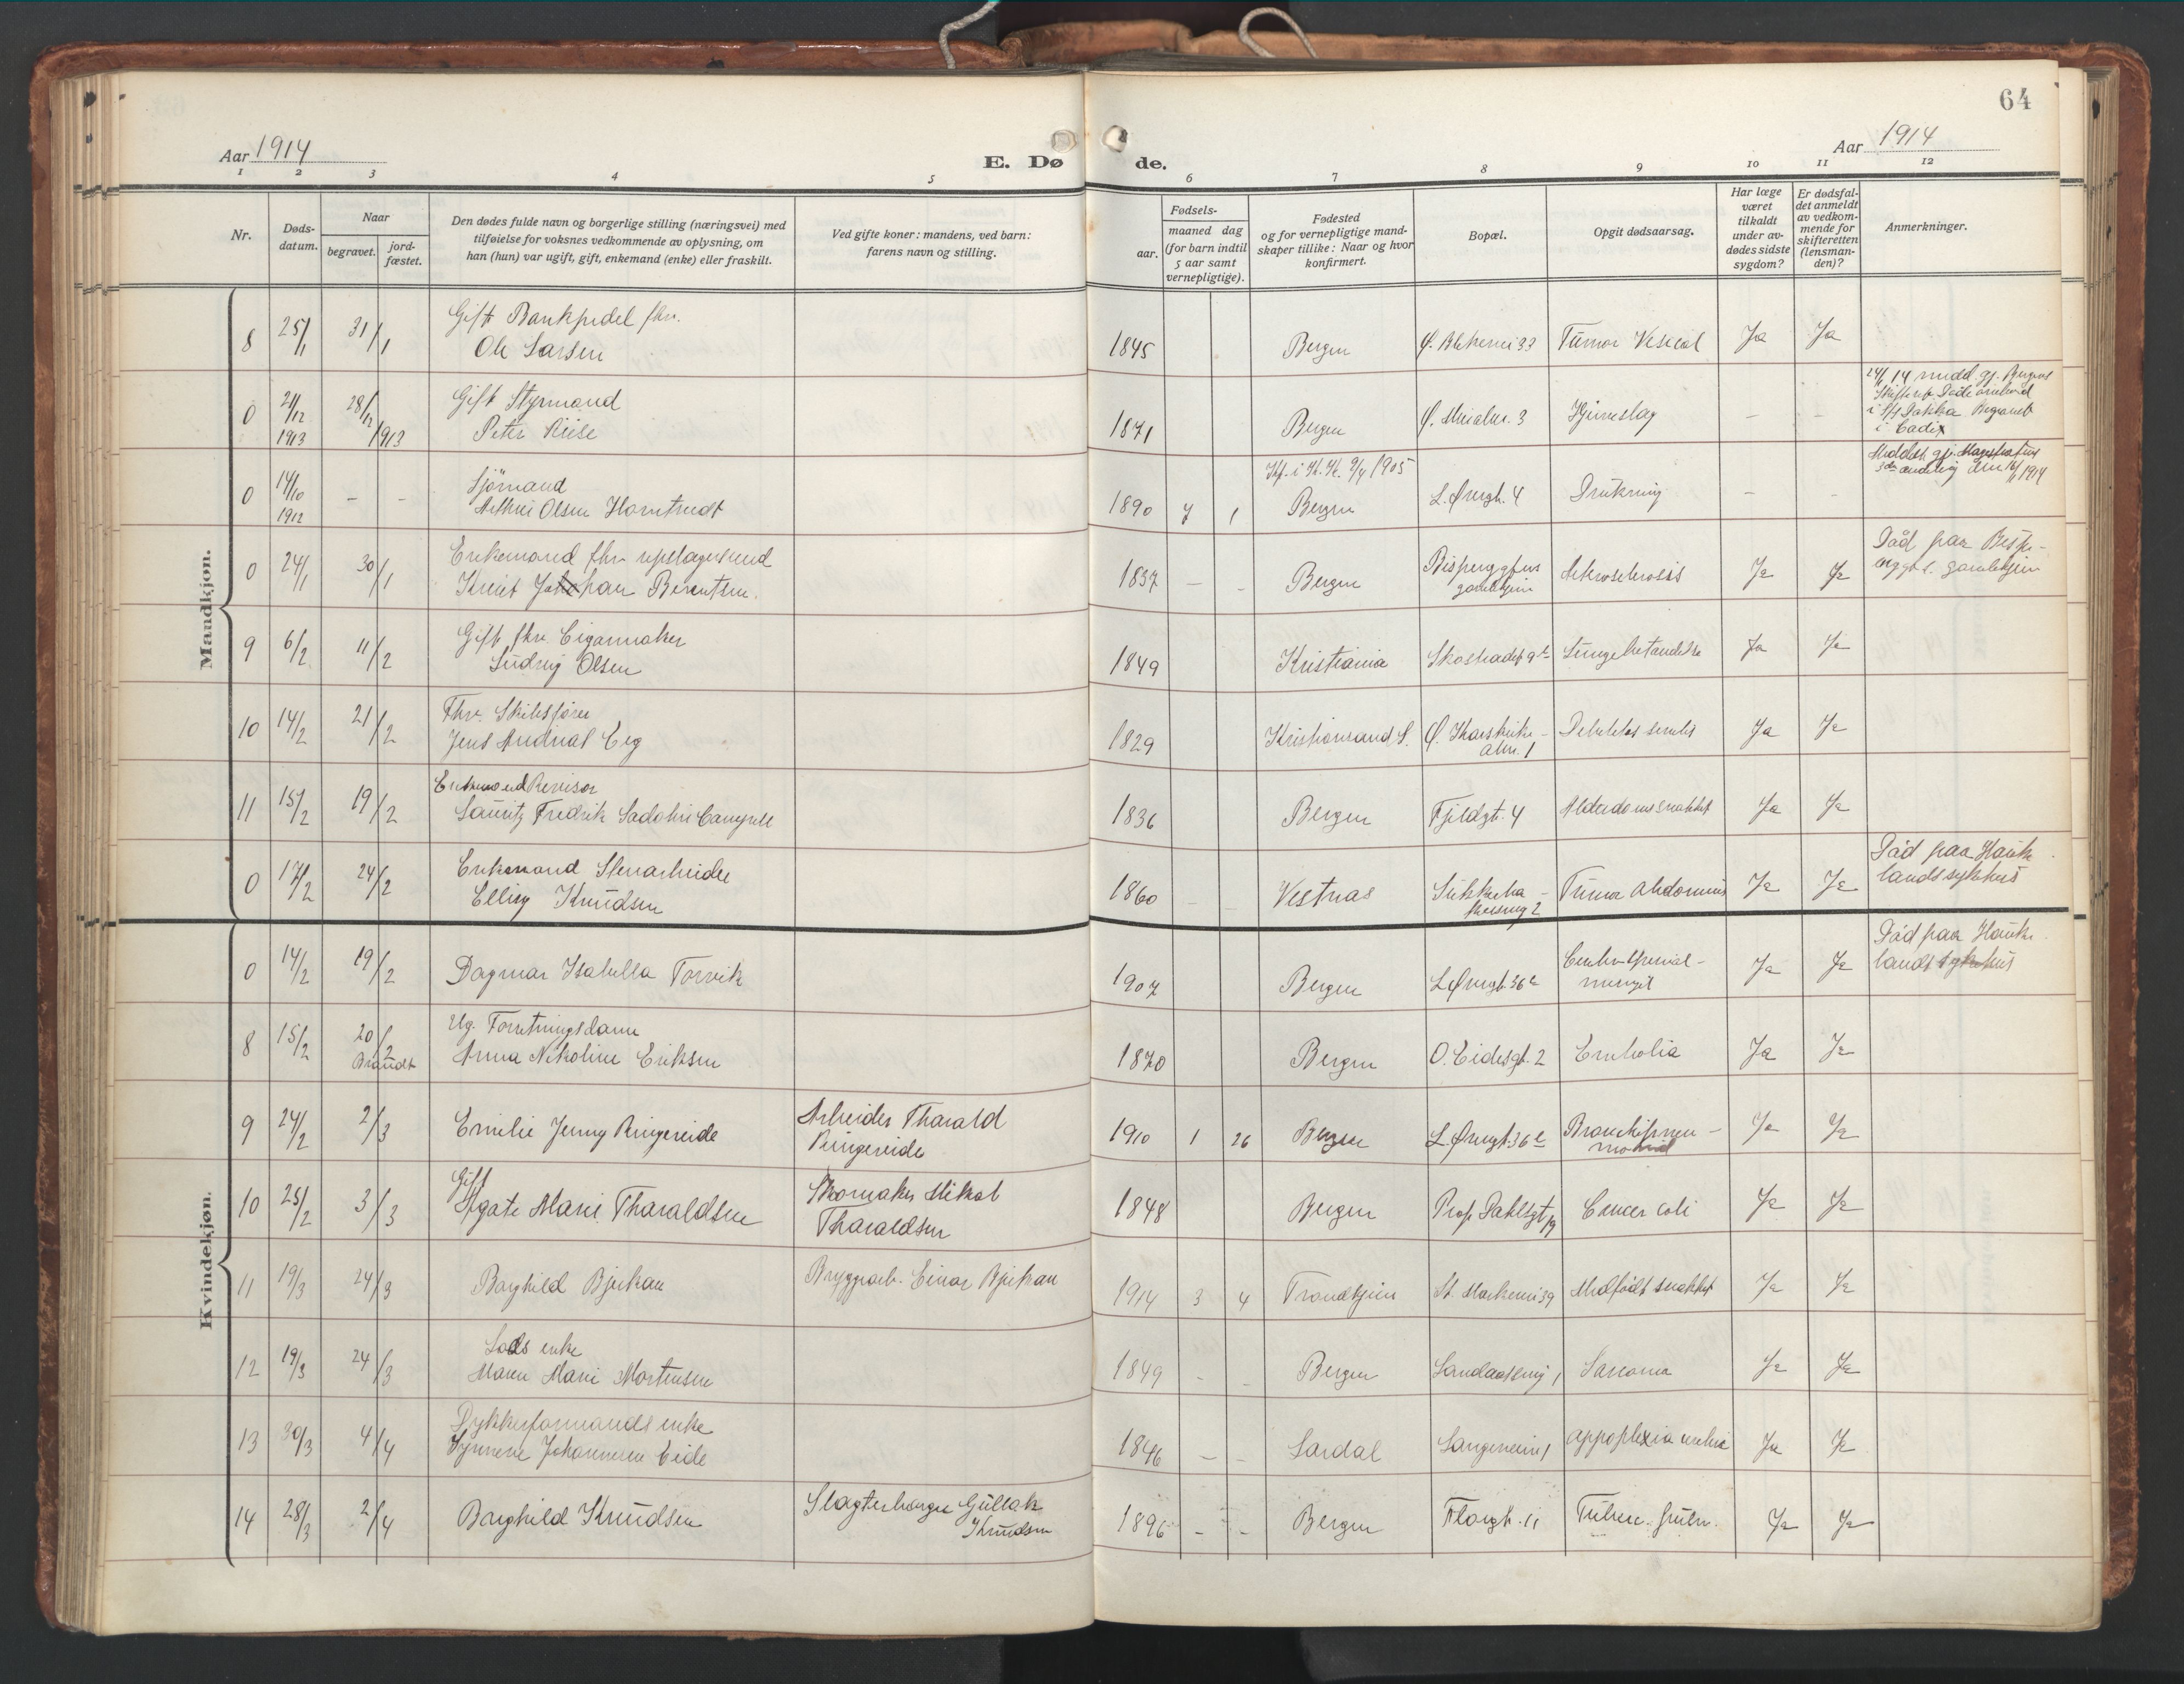 64
Aar 1914
E. Dø
de.
Aar 1914
1 2 3 4 5 6 7 8 9 10 11 12
Nr.
Døds-
datum.
Naar
begravet.
jord-
fæstet.
Den dødes fulde navn og borgerlige stilling (næringsvei) med
tilføielse for voksnes vedkommende av oplysning, om
han (hun) var ugift, gift, enkemand (enke) eller fraskilt.
Ved gifte koner: mandens, ved barn:
farens navn og stilling.
Fødsels-
aar.
maaned dag
(for barn indtil
5 aar samt
vernepligtige).
Fødested
og for vernepligtige mand-
skaper tillike: Naar og hvor
konfirmert.
Bopæl.
Opgit dødsaarsag.
Har læge
været
tilkaldt
under av-
dødes sidste
sygdom?
Er dødsfal-
det anmeldt
av vedkom-
mende for
skifteretten
(lensman-
den)?
Anmerkninger.
Mandkjøn.
8 25/1 31/1 Gift Bankpedel fhv.
Ole Larsen
1845 Bergen Ø. Blekevei 33 Tumor Vesical Ja Ja
0 21/12 1913 28/12 1913 Gift Styrmand
Peter Riise
1871 Bergen 3 Hjerneslag - -
i Cadix
0 14/10 1912 - - Sjömand
Olsen
1890 7 1 Kf. i K. K. 9/4 1905
Bergen L. Øvregt. 4 Drukning - -
0 24/1 30/1 Enkemand fhv
Johan Berentsen.
1837 - - Bergen Arterosclerosis Ja Ja
Död paa
gamlehjem
9 6/2 11/2 Gift fhv. Cigarmaker
Ludvig Olsen
1849 Kristiania Lungebetændelse Ja Ja
10 14/2 21/2 Fhv. Skibsfører
Jens Andreas Eeg
1829 Kristiansand S. Ø. Korskirke-
alm. 1
Debilitas senilis Ja Ja
11 15/2 19/2 Enkemand Revisor
Lauritz Fredrik
1836 Bergen Fjeldgt. 4 Alderdomssvakhet Ja Ja
0 17/2 24/2 Enkemand Stenarbeider
Elling Knudsen
1860 - - Vestnas 2 Tumor Abdominis Ja Ja
Död paa Hauke-
lands sykehus
Kvindekjøn.
0 14/2 19/2 Dagmar Isabella Torvik
1907 Bergen L. Øvregt. 36 Cerebrospinal-
mengit
Ja Ja
Död paa Hauke-
lands sykehus
8 15/2 20/2
Brændt
Ug. Forretningsdame
Anna Nikoline Eriksen
1870 Bergen O. Eidesgt. 2 Embolia Ja Ja
9 24/2 2/3 Emilie Jenny Ringereide
Arbeider Tharald
Ringereide
1910 1 26 Bergen L. Øvregt. 36 Bronchipneu-
moni
Ja Ja
10 25/2 3/3 Gift
Agate Marie Tharaldsen
Skomaker Mikal
Tharaldsen
1848 Bergen Prof. Dahlsgt 19 Cancer coli Ja Ja
11 19/3 24/3 Borghild Bjerkan
Bryggearb. Einar Bjerkan
1914 3 4 Trondhjem St. Markevei 39 Medfødt svakhet Ja Ja
12 19/3 24/3 Lods enke
Maren Marie Mortensen
1849 - - Bergen Landaasvei 1 Sarcoma Ja Ja
13 30/3 4/4 Dykkerformands enke
Synneve Johannesen Eide
1846 - - Lærdal 1 Appoplexia cerebri Ja Ja
14 28/3 2/4 Borghild Knudsen
Slagterborger Gullak
Knudsen
1896 - - Bergen Florgt. 11 Tuberc. pulm. Ja Ja